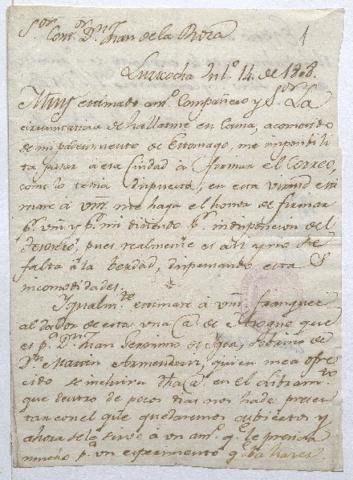 S.or Con.or D.n Juan de la Roza
1
Luricocha Jul.o 14. de 1808.
Muy estimado am.o Compañero y S.or La
circunstancia de hallarme en Cama, acometido
de mi padecimiento de Estomago, me imposibili
ta pasar à esa Ciudad à firmar el Correo,
como lo tenia dispuesto; en esta virtud esti
maré à Vm. me haga el honor de firmar
p.r mi y p.r mi diciendo p.r indisposicion del
pues realmente es asi y no se
falta à la Verdad, dispensando esta
incomodidades.
Ygualm.te estimaré à vm. franquee
al dador de esta una Ca de Azogue que
es p.a D.n Juan Geronimo de sobrino de
D.n Martin Armendaris, quien me ofre
cido se incluira dha Ca. en el Libram.to
que dentro de pocos dias nos hade presen
tar con el que quedaremos cubiertos y
ahora se le sirve à un am.o q.e le precisa
mucho p.a un esperimento q.e ba hacer